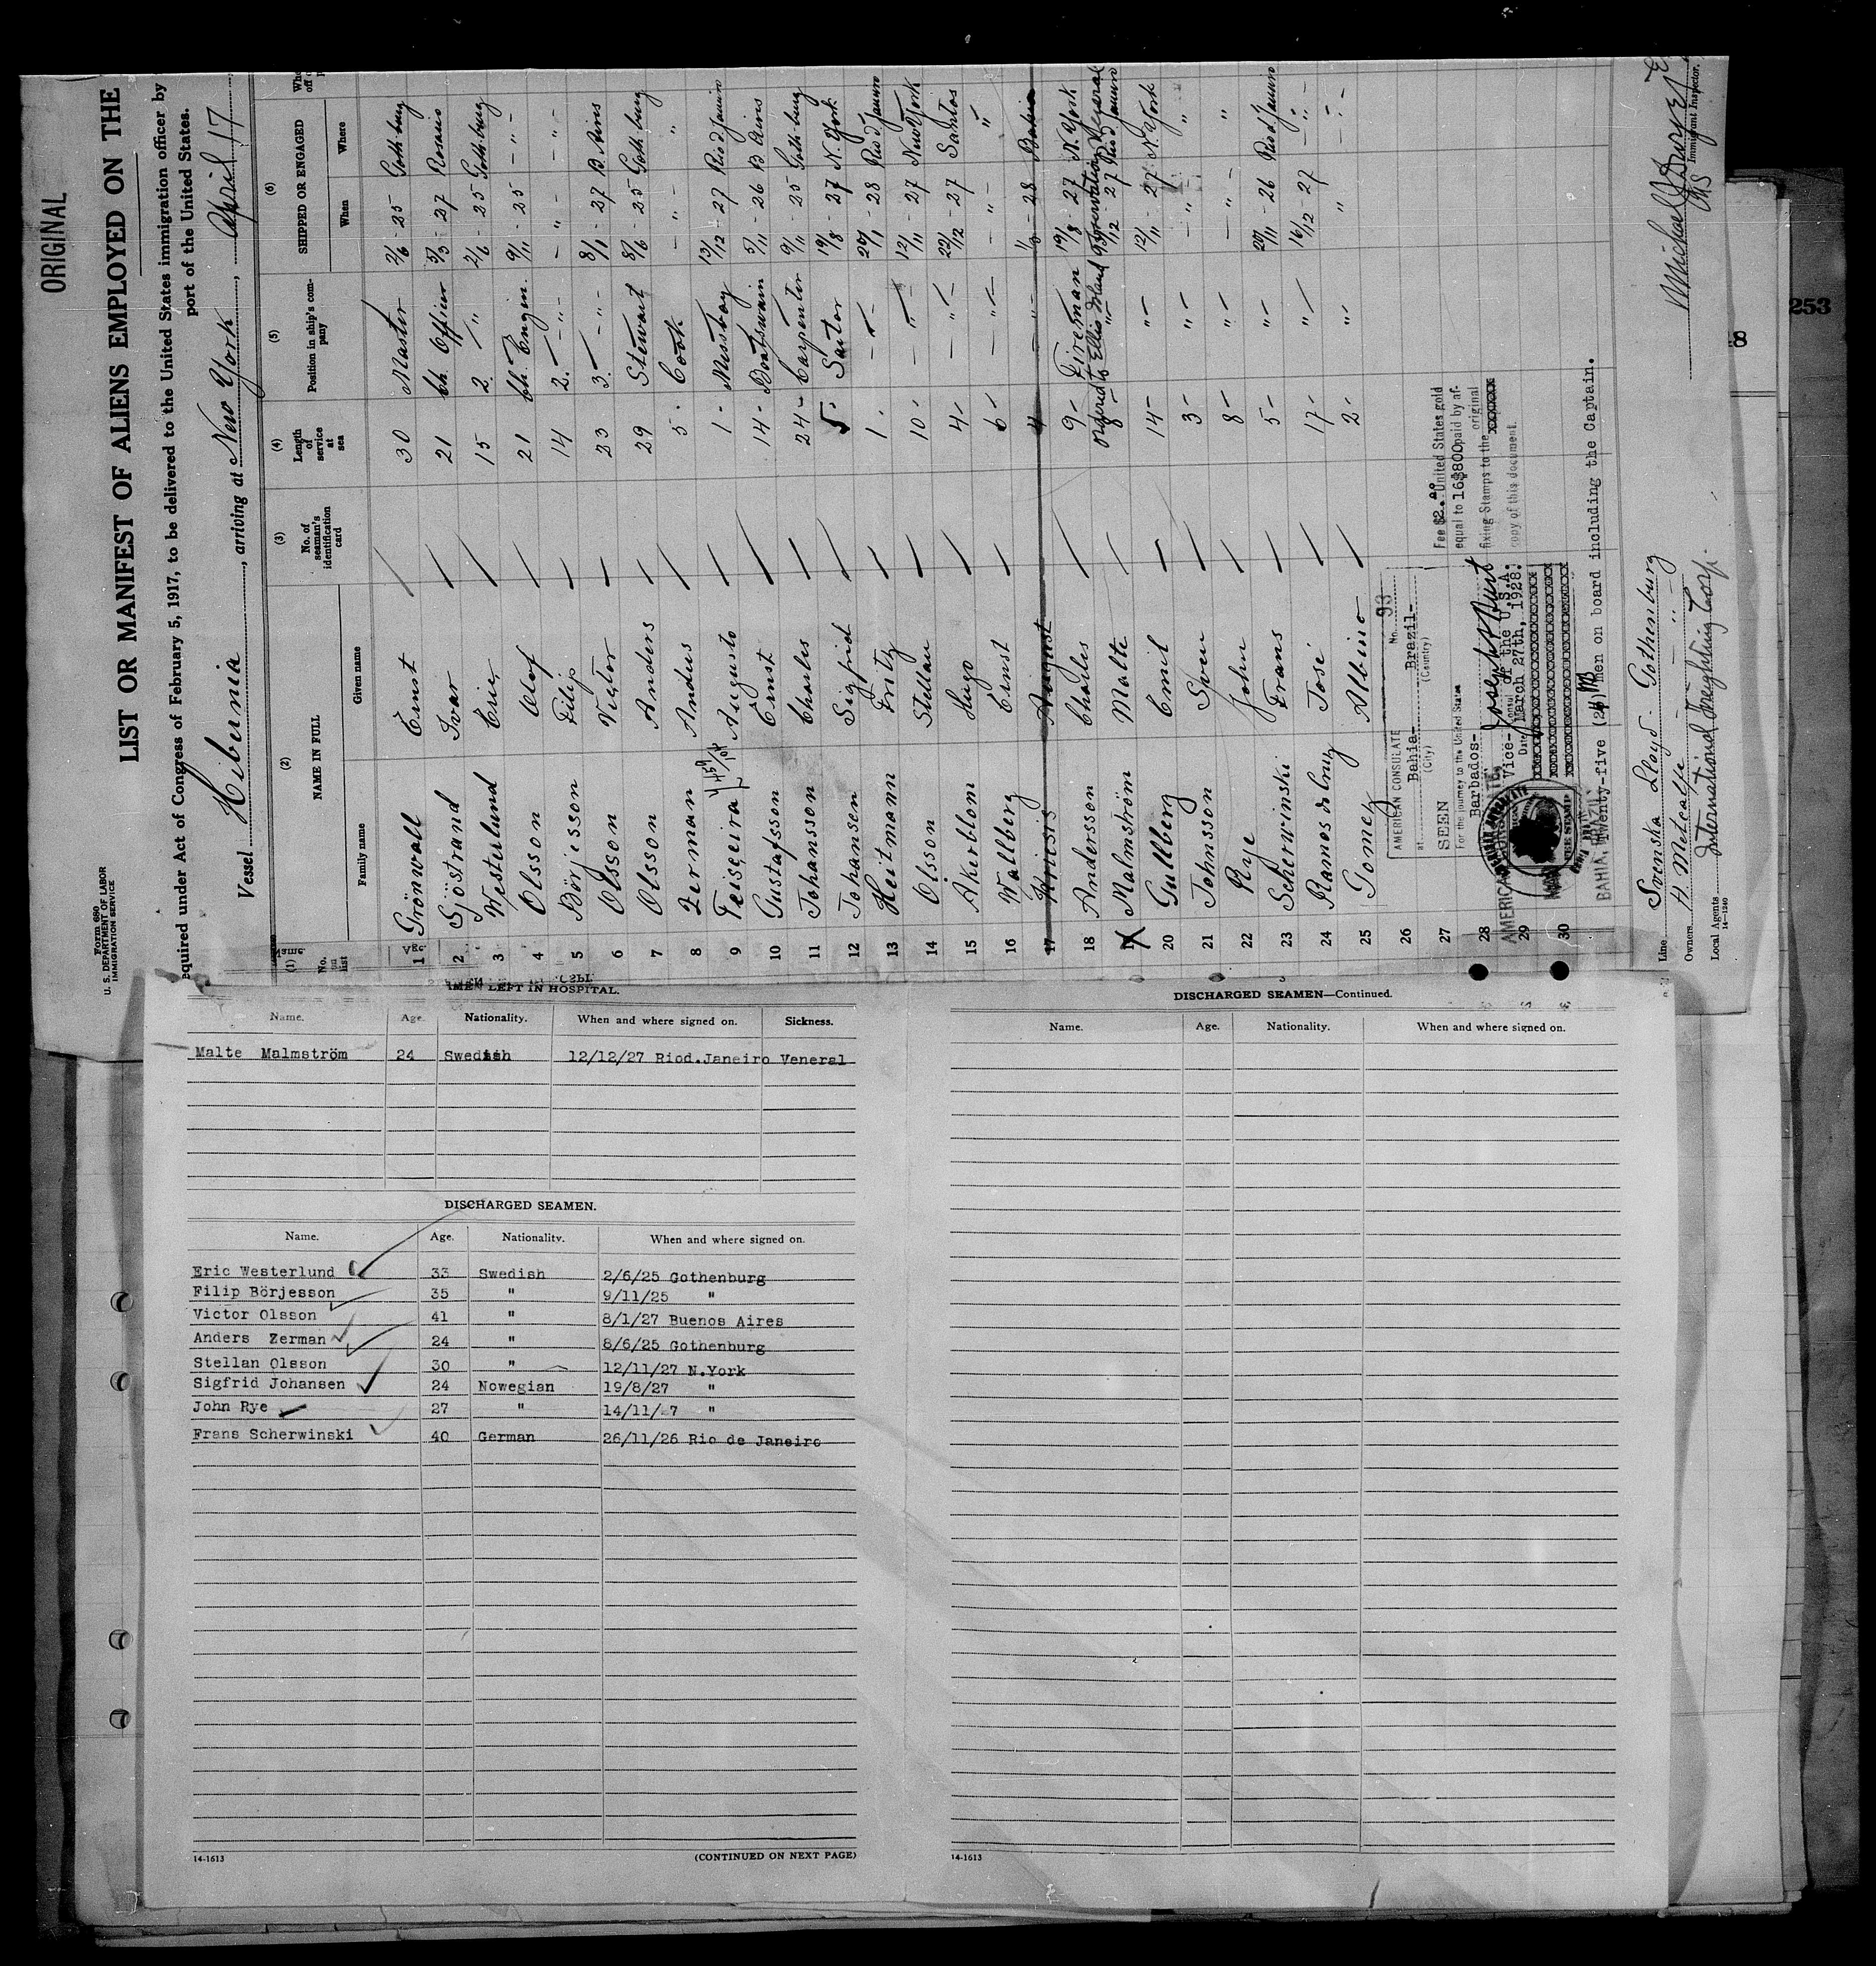 ORIGINAL
Form 680
U. S. DEPARTMENT OF LABOR
IMMIGRATION SERVICE
LIST OR MANIFEST OF ALIENS EMPLOYED ON THE
equired under Act of Congress of February 5, 1917, to be delivered to the United States immigration officer by
port of the United States.
Vessel Hibernia, arriving at New York, April 17
(1) (2) (3) (4) (5) (6)
No. on list NAME IN FULL No. of seaman's identification card Length of service at sea Position in ship's company SHIPPED OR ENGAGED
Family name Given name When Where
1 Grönwall Ernst 30 Master 2/6 - 25 Gothburg
2 Sjöstrand Ivar 21 Ch. Officer 5/3 - 27 Rosario
3 Westerlund Eric 15 2. " 2/6 - 25 Gothburg
4 Olsson Olof 21 Ch. Engin. 9/11 - 25 - " -
5 Börjesson Filip 14 2. - " - - " - - " -
6 Olsson Victor 23 3. - " - 8/1 - 27 B. Aires
7 Olsson Anders 29 Steward 8/6 - 25 Gothburg
8 Zerman Andus 5 Cook - " - "
9 Teiseira Augusto 1 - Messboy 13/12 - 27 Rio d Janeiro
10 Gustafsson Ernst 14 - Boatswain 5/11 - 26 B Aires
11 Johansson Charles 24 - Carpenter 9/11 - 25 Gothburg
12 Johansen Sigfrid 5 - Sailor 19/8 - 27 N. York
13 Heitmann Fritz 1 - - " - 20/1 - 28 Rio d Janeiro
14 Olsson Stellan 10 - - " - 12/11 - 27 New York
15 Åkerblom Hugo 4 - - " - 22/12 - 27 Santos
16 Wallberg Ernst 6 - - " - - " - "
17 August 4 - " - 28 Bahia
18 Andersson Charles 9 - Fireman 19/8 - 27 N. York
ordered to Ellis Island
19 Malmström Malte 8 - " 13/12 - 27 Rio d Janeiro
20 Gullberg Emil 14 - " - 12/11 - 27 N. York
21 Johnsson Sven 3 - " - - " - "
22 Rye John 8 - " - - " - "
23 Scherwinski Frans 5 - " - 20/11 - 26 Rio d Janeiro
24 Ramos da Cruz José 17 - " - 16/12 - 27 - " -
25 Gomez Albino 2 - " " - " -
26
27
28
29
30
AMERICAN CONSULATE No. 93
at Bahia- Brazil-
(City) (Country)
SEEN
For the journey to the United States
Barbados-
Vice- Consul of the U.S.A.
Date March 27th, 1928.
Fee $2.00 United States gold
equal to 16$800 paid by af-
fixing Stamps to the original
copy of this document.
BAHIA, BRAZIL
Twenty-five men on board including the Captain.
Line Svenska Lloyd - Gothenburg
Owners - " -
Local Agents H. Metcalfe International Freighting Corp.
14-1240
Immigrant Inspector.
253
SEAMEN LEFT IN HOSPITAL.
Name. Age. Nationality. When and where signed on. Sickness.
Malte Malmström 24 Swedish 12/12/27 Riod.Janeiro Veneral
DISCHARGED SEAMEN.
Name. Age. Nationality. When and where signed on.
Eric Westerlund 33 Swedish 2/6/25 Gothenburg
Filip Börjesson 35 " 9/11/25 "
Victor Olsson 41 " 8/1/27 Buenos Aires
Anders Zerman 24 " 8/6/25 Gothenburg
Stellan Olsson 30 " 12/11/27 N.York
Sigfrid Johansen 24 Nowegian 19/8/27 "
John Rye 27 " 14/11/27 "
Frans Scherwinski 40 German 26/11/26 Rio de Janeiro
14-1613 (CONTINUED ON NEXT PAGE)
DISCHARGED SEAMEN—Continued.
Name. Age. Nationality. When and where signed on.
14-1613